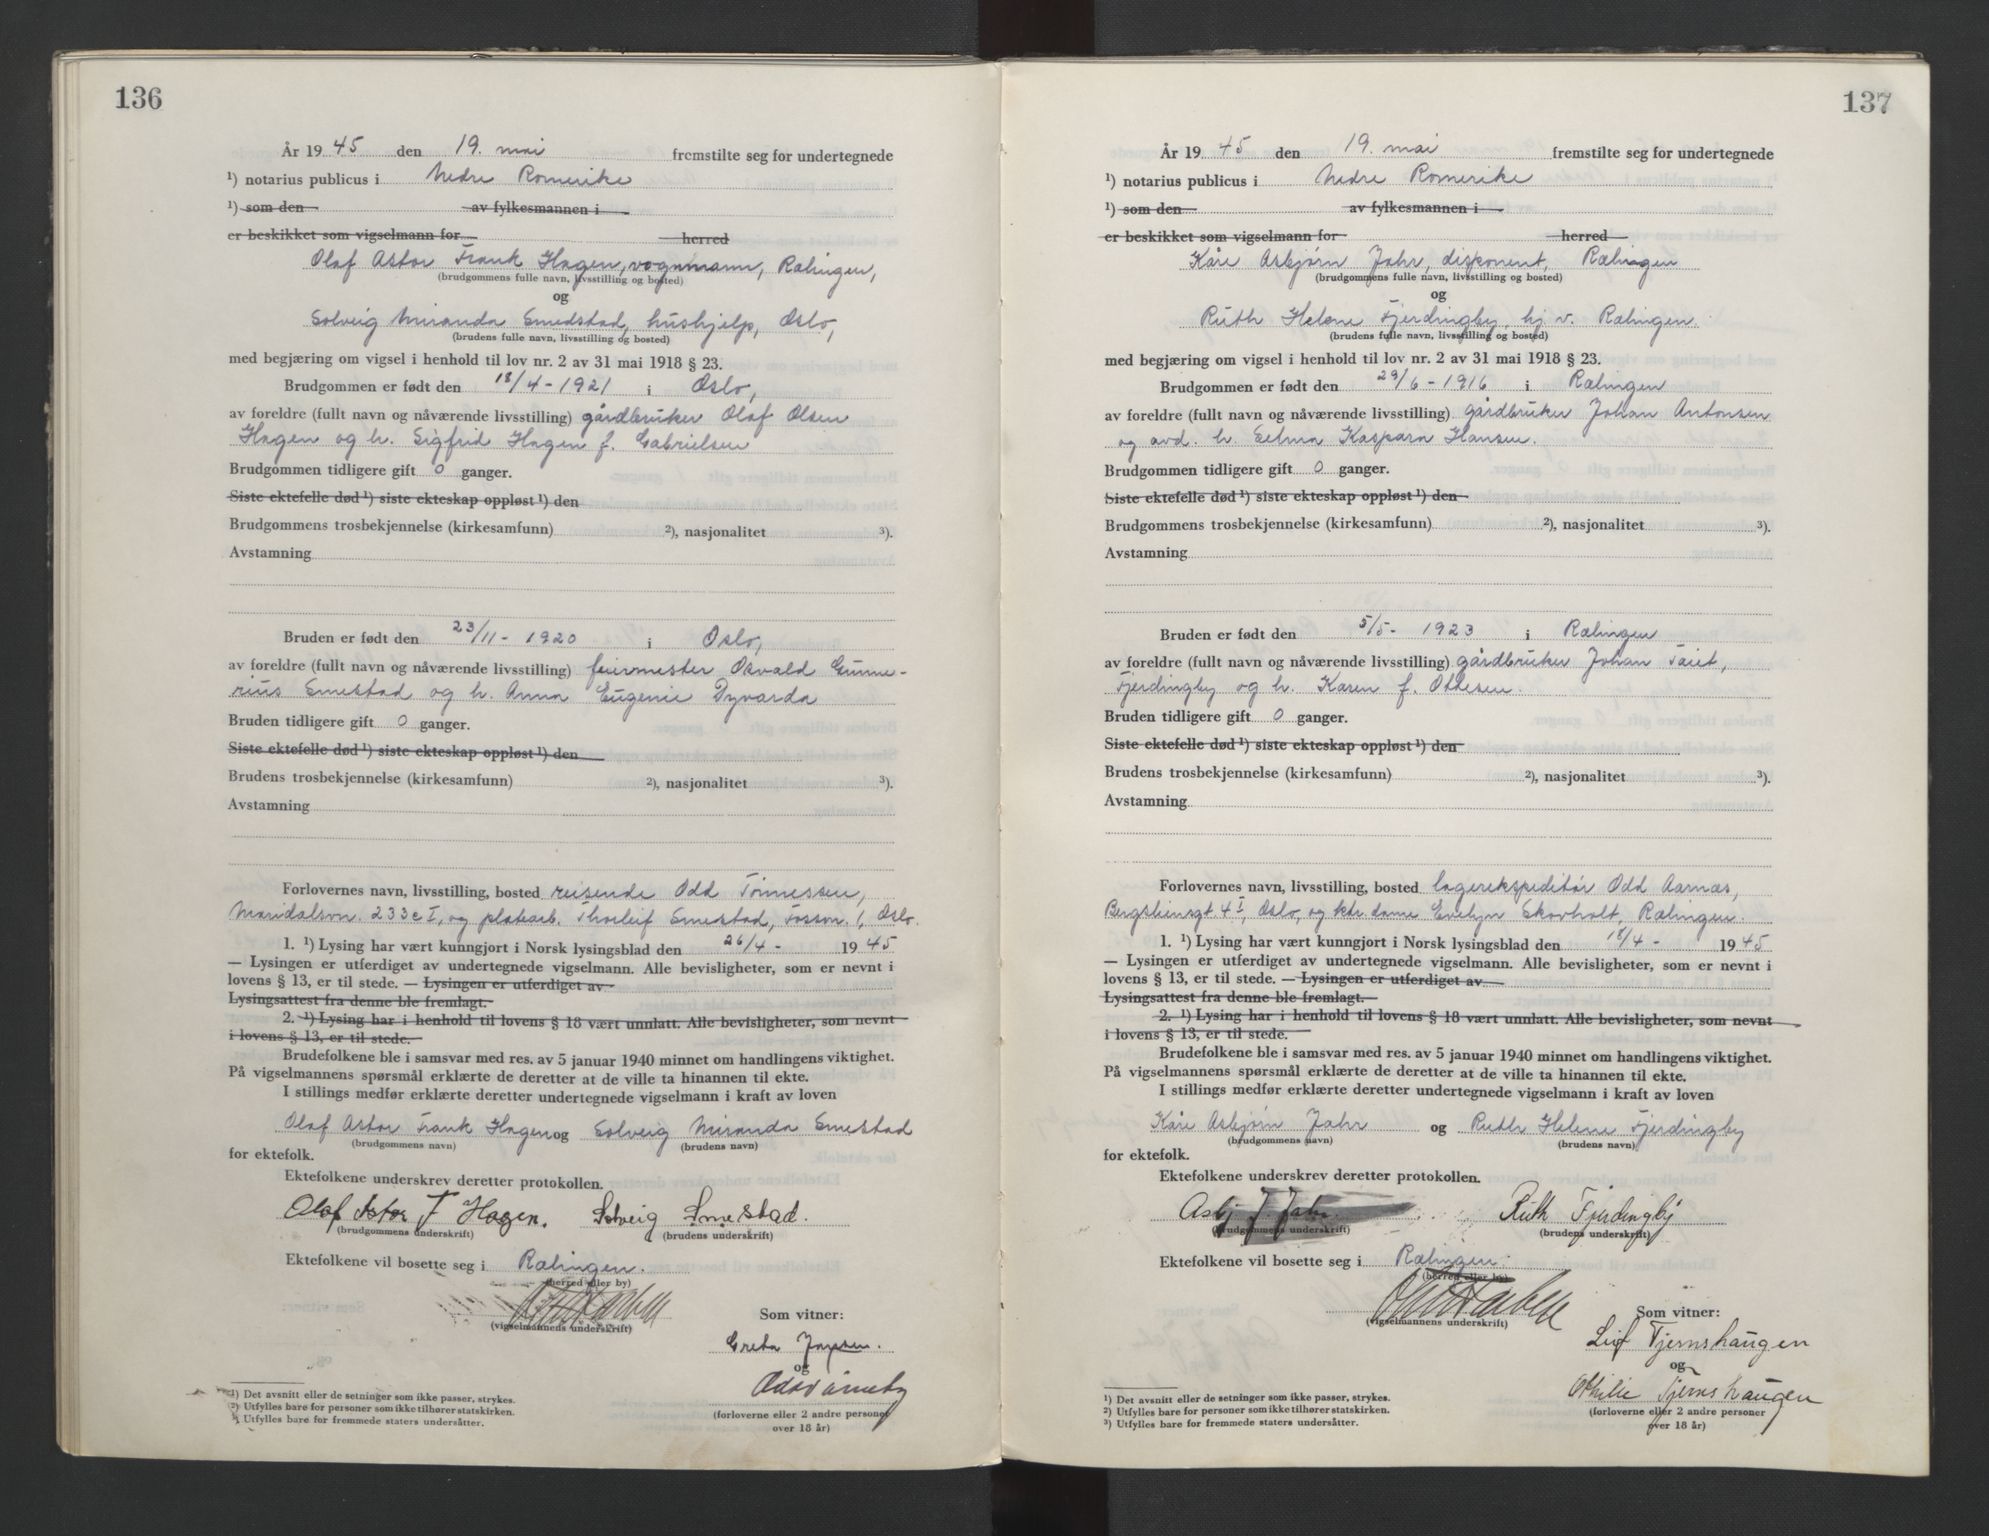 136
År 19 45 den 19. mai fremstilte seg for undertegnede
¹) notarius publicus i Nedre Romerike
¹) som den av fylkesmannen i
er beskikket som vigselmann for herred
Olaf Astor Frank Hagen, vognmann, Rælingen,
(brudgommens fulle navn, livsstilling og bosted)
og
Solveig Miranda Smedstad, hushjelp, Oslo,
(brudens fulle navn, livsstilling og bosted)
med begjæring om vigsel i henhold til lov nr. 2 av 31 mai 1918 § 23.
Brudgommen er født den 18/4 - 1921 i Oslo,
av foreldre (fullt navn og nåværende livsstilling) gårdbruker Olaf Olsen
Hagen og h. Sigfrid Hagen f. Gabrielsen
Brudgommen tidligere gift 0 ganger.
Siste ektefelle død ¹) siste ekteskap oppløst ¹) den
Brudgommens trosbekjennelse (kirkesamfunn) ²), nasjonalitet ³).
Avstamning
Bruden er født den 23/11 - 1920 i Oslo,
av foreldre (fullt navn og nåværende livsstilling) feiermester Osvald Gunne-
rius Smestad og h. Anna Eugenie Dyvarda
Bruden tidligere gift 0 ganger.
Siste ektefelle død ¹) siste ekteskap oppløst ¹) den
Brudens trosbekjennelse (kirkesamfunn) ²), nasjonalitet ³).
Avstamning
Forlovernes navn, livsstilling, bosted reisende Odd Tönnessen,
Maridalsvn. 233c I, og platearb. Thorleif Smestad, Fossvn. 1, Oslo.
1. ¹) Lysing har vært kunngjort i Norsk lysingsblad den 26/4 - 19 45
— Lysingen er utferdiget av undertegnede vigselmann. Alle bevisligheter, som er nevnt i
lovens § 13, er til stede. — Lysingen er utferdiget av
Lysingsattest fra denne ble fremlagt.
2. ¹) Lysing har i henhold til lovens § 18 vært unnlatt. Alle bevisligheter, som nevnt
i lovens § 13, er til stede.
Brudefolkene ble i samsvar med res. av 5 januar 1940 minnet om handlingens viktighet.
På vigselmannens spørsmål erklærte de deretter at de ville ta hinannen til ekte.
I stillings medfør erklærte deretter undertegnede vigselmann i kraft av loven
Olaf Astor Frank Hagen og Solveig Miranda Smestad
(brudgommens navn) (brudens navn)
for ektefolk.
Ektefolkene underskrev deretter protokollen.
Olaf Astor F Hagen. Solveig Smestad.
(brudgommens underskrift) (brudens underskrift)
Ektefolkene vil bosette seg i Rælingen.
(herred eller by)
(vigselmannens underskrift)
Som vitner:
Greta
og
(forloverne eller 2 andre personer
over 18 år)
¹) Det avsnitt eller de setninger som ikke passer, strykes.
²) Utfylles bare for personer som ikke tilhører statskirken.
³) Utfylles bare for fremmede staters undersåtter.
137
År 19 45 den 19. mai fremstilte seg for undertegnede
¹) notarius publicus i Nedre Romerike
¹) som den av fylkesmannen i
er beskikket som vigselmann for herred
Kåre Asbjørn Jahr, disponent, Rælingen
(brudgommens fulle navn, livsstilling og bosted)
og
Ruth Helene Fjerdingby, hj v. Rælingen.
(brudens fulle navn, livsstilling og bosted)
med begjæring om vigsel i henhold til lov nr. 2 av 31 mai 1918 § 23.
Brudgommen er født den 29/6 - 1916 i Rælingen
av foreldre (fullt navn og nåværende livsstilling) gårdbruker Johan Antonsen
og avd. h. Selma Kaspara Hansen.
Brudgommen tidligere gift 0 ganger.
Siste ektefelle død ¹) siste ekteskap oppløst ¹) den
Brudgommens trosbekjennelse (kirkesamfunn) ²), nasjonalitet ³).
Avstamning
Bruden er født den 5/5 - 1923 i Rælingen
av foreldre (fullt navn og nåværende livsstilling) gårdbruker Johan
Fjerdingby og h. Karen f. Ottesen.
Bruden tidligere gift 0 ganger.
Siste ektefelle død ¹) siste ekteskap oppløst ¹) den
Brudens trosbekjennelse (kirkesamfunn) ²), nasjonalitet ³).
Avstamning
Forlovernes navn, livsstilling, bosted lagerekspeditør Odd Aarnæs,
Bergsliensgt 4 I, Oslo, og ktr. dame Evelyn Skovholt, Rælingen.
1. ¹) Lysing har vært kunngjort i Norsk lysingsblad den 18/4 - 19 45
— Lysingen er utferdiget av undertegnede vigselmann. Alle bevisligheter, som er nevnt i
lovens § 13, er til stede. — Lysingen er utferdiget av
Lysingsattest fra denne ble fremlagt.
2. ¹) Lysing har i henhold til lovens § 18 vært unnlatt. Alle bevisligheter, som nevnt
i lovens § 13, er til stede.
Brudefolkene ble i samsvar med res. av 5 januar 1940 minnet om handlingens viktighet.
På vigselmannens spørsmål erklærte de deretter at de ville ta hinannen til ekte.
I stillings medfør erklærte deretter undertegnede vigselmann i kraft av loven
Kåre Asbjørn Jahr og Ruth Helene Fjerdingby
(brudgommens navn) (brudens navn)
for ektefolk.
Ektefolkene underskrev deretter protokollen.
Asbj J. Jahr. Ruth Fjerdingby
(brudgommens underskrift) (brudens underskrift)
Ektefolkene vil bosette seg i Rælingen.
(herred eller by)
(vigselmannens underskrift)
Som vitner:
Leif Tjernshaugen
og
Othilie Tjernshaugen
(forloverne eller 2 andre personer
over 18 år)
¹) Det avsnitt eller de setninger som ikke passer, strykes.
²) Utfylles bare for personer som ikke tilhører statskirken.
³) Utfylles bare for fremmede staters undersåtter.